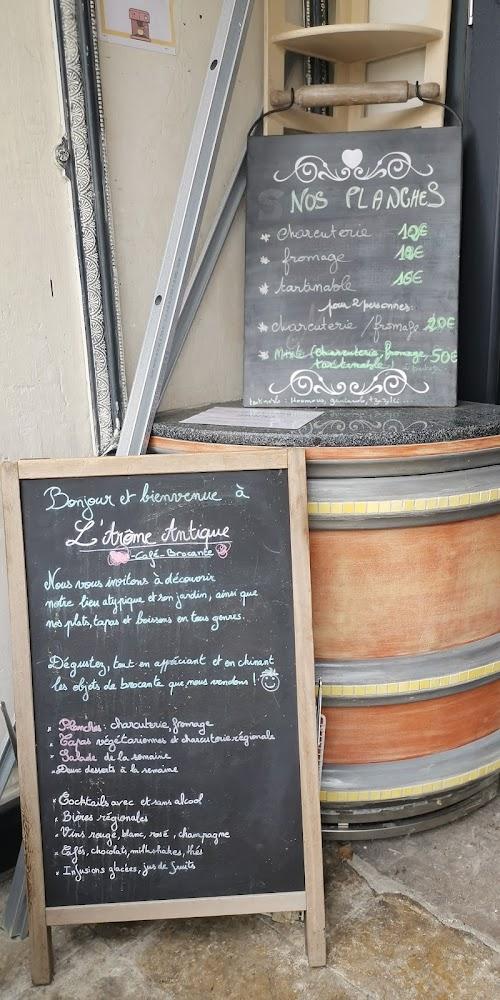 NOS PLANCHES
* charcuterie
* fromage
* tartinable 15€
pour 2 personnes:
* charcuterie / fromage 20€
* Mixte (charcuterie, fromage, 50€
tartinable)
Bonjour et bienvenue à
L'Arôme Antique
- Café-Brocante
Nous vous invitons à découvrir
notre lieu atypique et son jardin, ainsi que
nos plats, tapas et boissons en tous genres.
Dégustez, tout en appréciant et en chinant
les objets de brocante que nous vendons !
* Planches : charcuterie, fromage
* Tapas végétariennes et charcuterie régionale
* Salade de la semaine
* Deux desserts à la semaine
* Cocktails avec et sans alcool
* Bières régionales
* Vins rouge, blanc, rosé, champagne
* Cafés, chocolats, milkshakes, thés
* Infusions glacées, jus de fruits